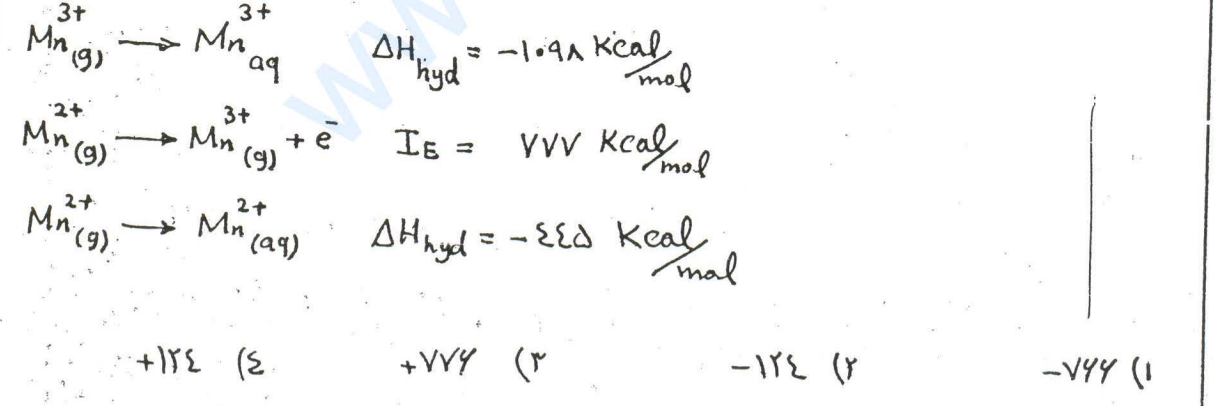 Mn³⁺(g) ⟶ Mn³⁺aq ΔHhyd = -۱۰۹۸ Kcal/mol
Mn²⁺(g) ⟶ Mn³⁺(g) + e⁻ IE = ۷۷۷ Kcal/mol
Mn²⁺(g) ⟶ Mn²⁺(aq) ΔHhyd = -٤٤۵ Kcal/mol
-۷۶۶ (۱ -۱۲٤ (۲ +۷۷۶ (۳ +۱۲٤ (٤